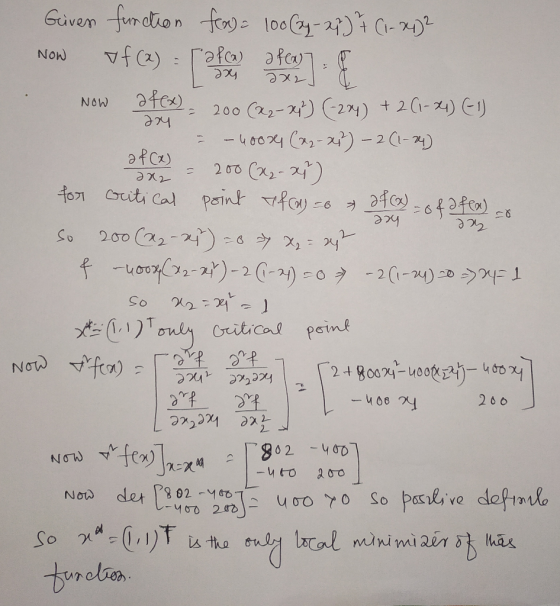 Given function f(x) = 100(x₂-x₁²)² + (1-x₁)²
Now ∇f(x) = [∂f(x)/∂x₁ ∂f(x)/∂x₂] =
Now ∂f(x)/∂x₁ = 200 (x₂-x₁²) (-2x₁) + 2(1-x₁) (-1)
= -400x₁ (x₂-x₁²) - 2(1-x₁)
∂f(x)/∂x₂ = 200 (x₂-x₁²)
for critical point ∇f(x)=0 ⇒ ∂f(x)/∂x₁ = 0 & ∂f(x)/∂x₂ = 0
So 200(x₂-x₁²) = 0 ⇒ x₂ = x₁²
& -400x₁(x₂-x₁²) - 2(1-x₁) = 0 ⇒ -2(1-x₁) = 0 ⇒ x₁ = 1
So x₂ = x₁² = 1
x* = (1,1)ᵀ only critical point
Now ∇²f(x) = [∂²f/∂x₁² ∂²f/∂x₂∂x₁ ; ∂²f/∂x₂∂x₁ ∂²f/∂x₂²] = [2+800x₁²-400(x₂-x₁²) -400x₁ ; -400x₁ 200]
Now ∇²f(x)]x=x* = [802 -400 ; -400 200]
Now det [802 -400 ; -400 200] = 400 > 0 so positive definite
So x* = (1,1)ᵀ is the only local minimizer of this
function.